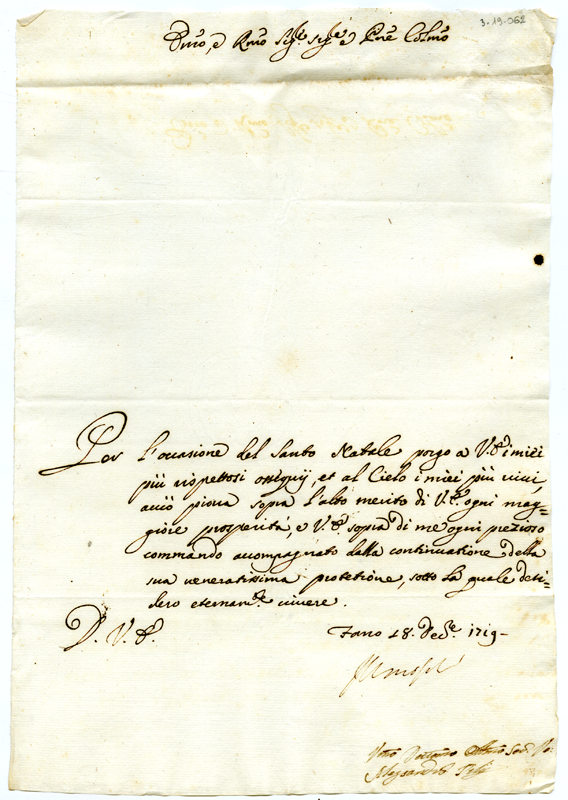 3-19-062
Emo, e Rmo Sigr. Sigre e Pne Colmo
Per l'occasione del Santo Natale porgo a V. Ea i miei
più rispettosi ossequij, et al Cielo i miei più vivi,
acciò piova sopra l'alto merito di V. Ea ogni mag=
giore prosperità, e V. Ea sopra di me ogni prezioso
commando accompagnato dalla continuatione della
sua veneratissima protetione, sotto la quale desi=
dero eternamte vivere.
D. V. Ea.
Fano 18. Decre 1719-
Alessandro